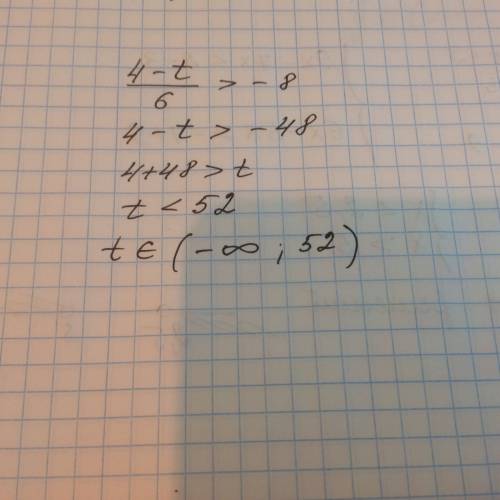 (4-t)/6 > -8
4-t > -48
4+48 > t
t < 52
t ∈ (-∞ ; 52)